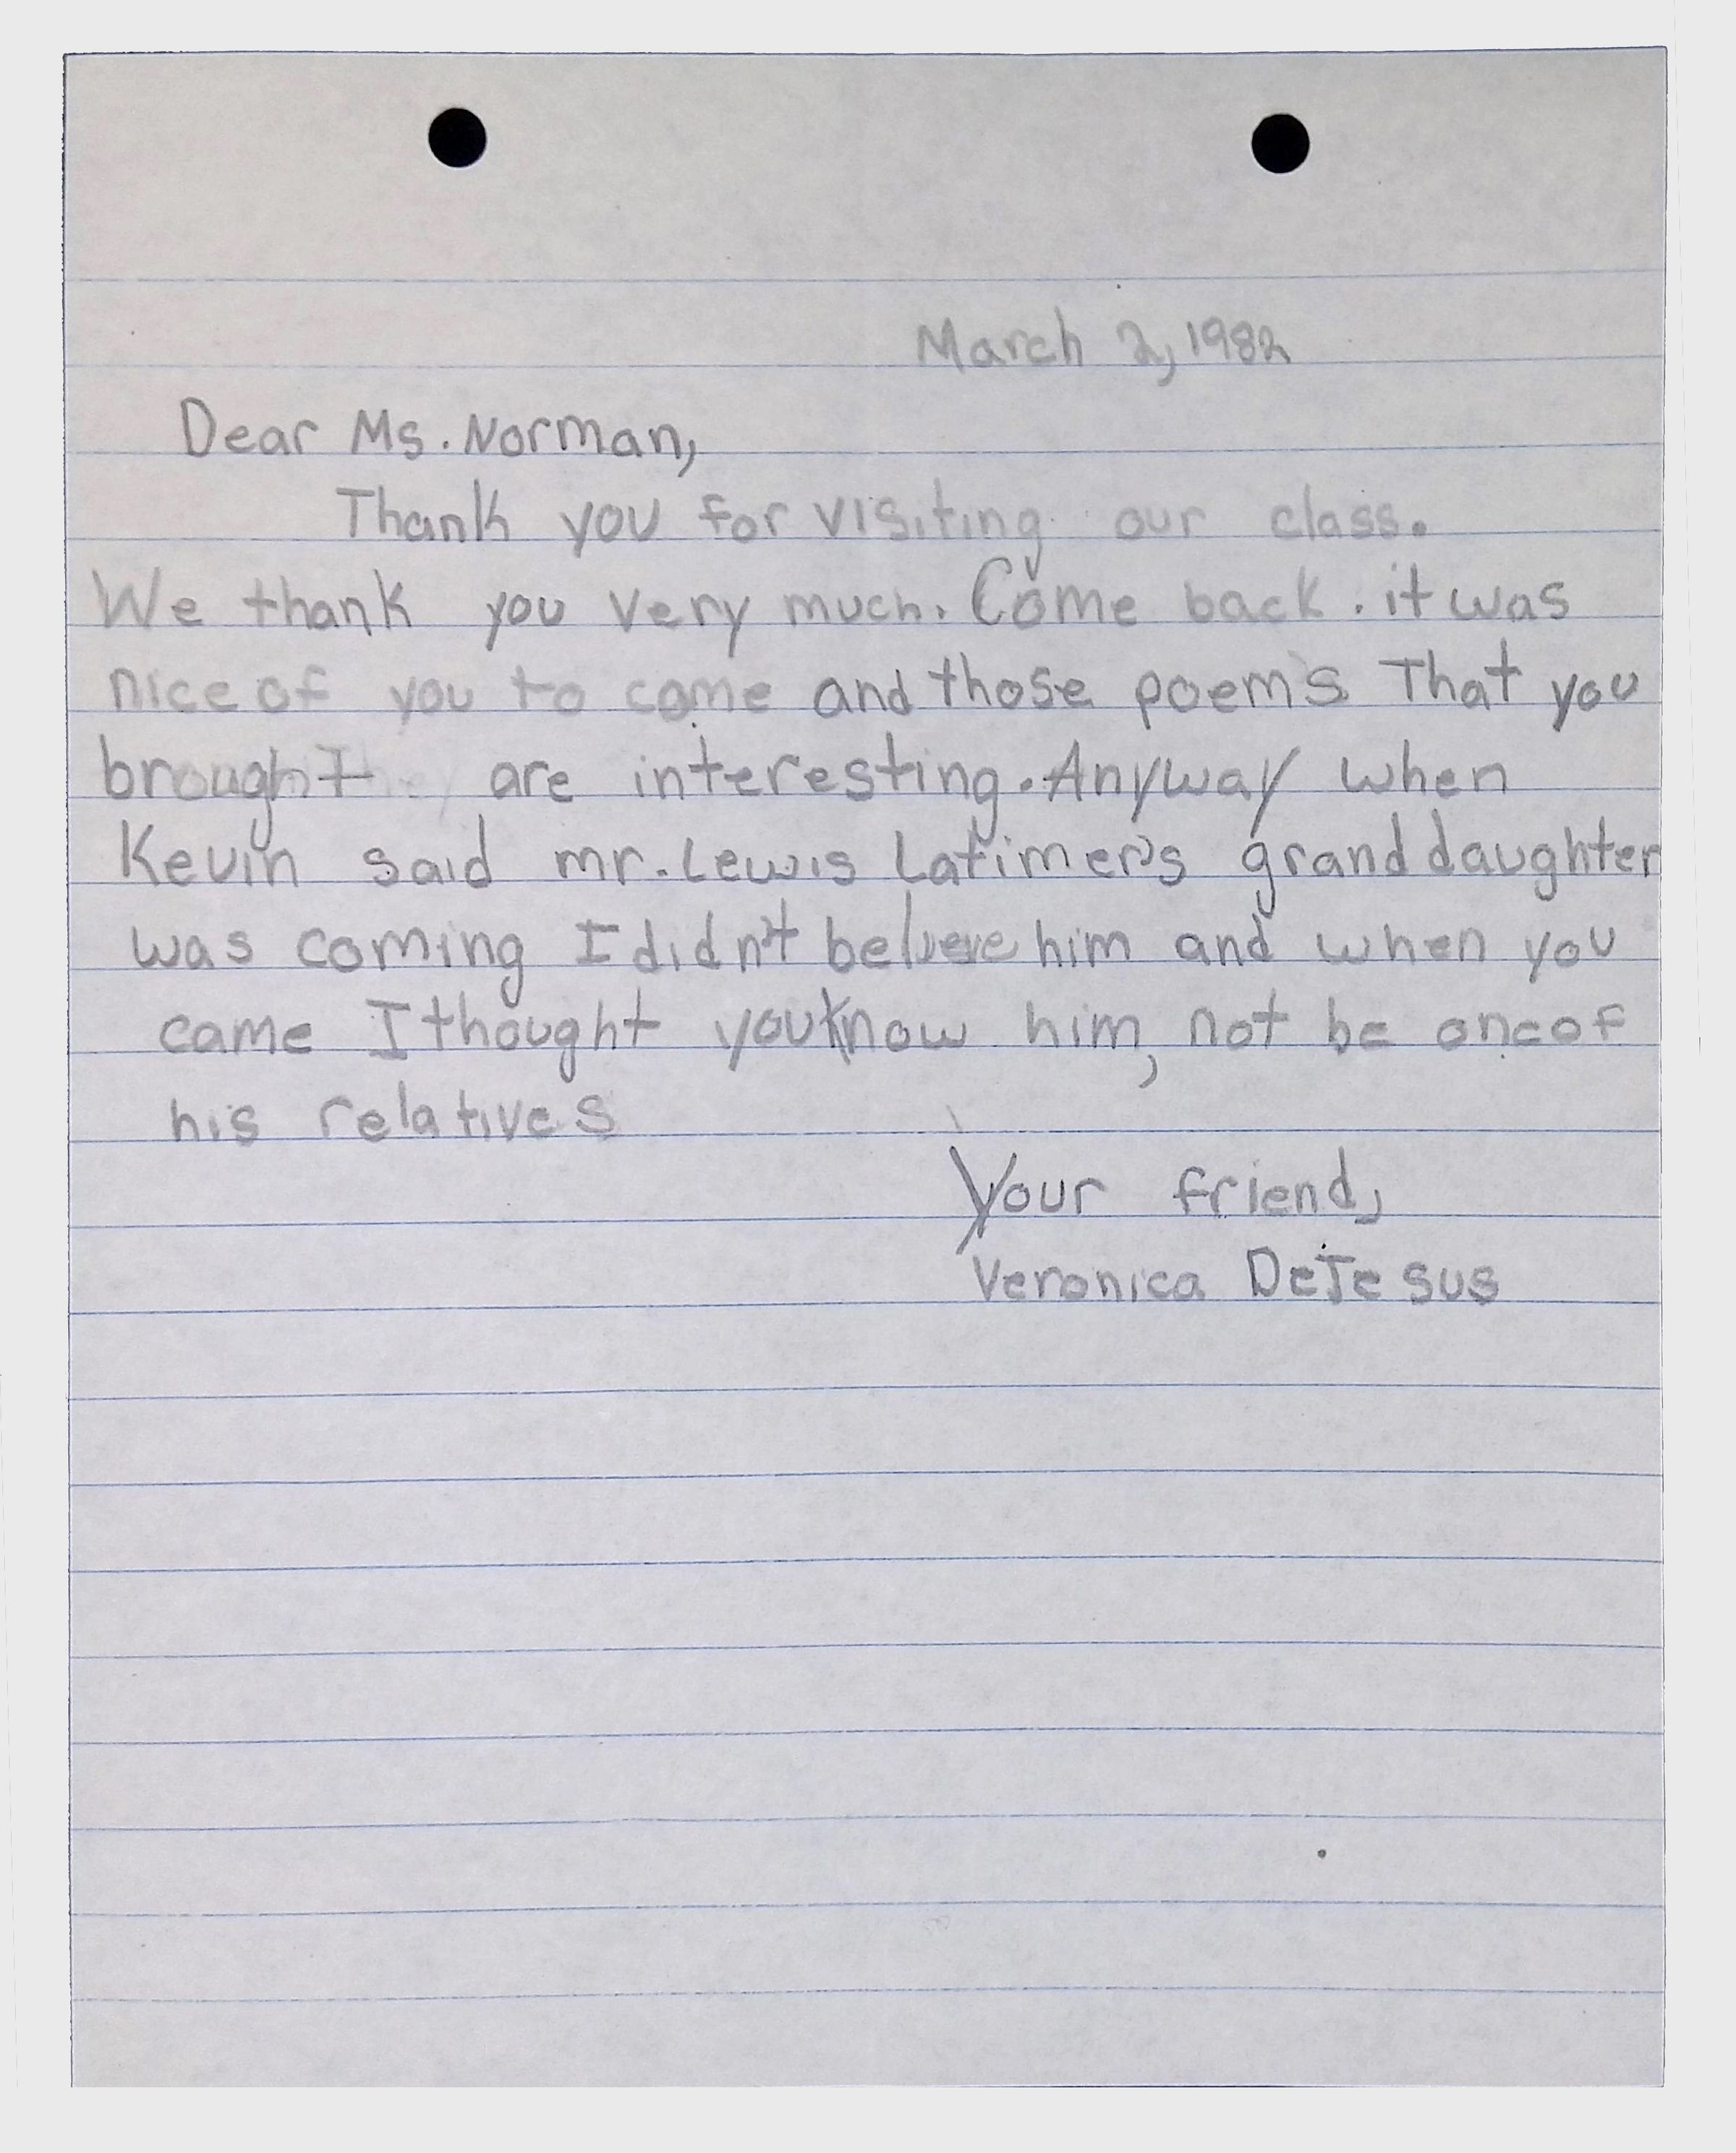 March 2, 1982
Dear Ms. Norman,
Thank you for visiting our class.
We thank you very much. Come back. it was
nice of you to come and those poems That you
brought are interesting. Anyway when
Kevin said mr. Lewis Latimer's granddaughter
was coming I didn't believe him and when you
came I thought you know him, not be one of
his relatives
Your friend,
Veronica DeJesus